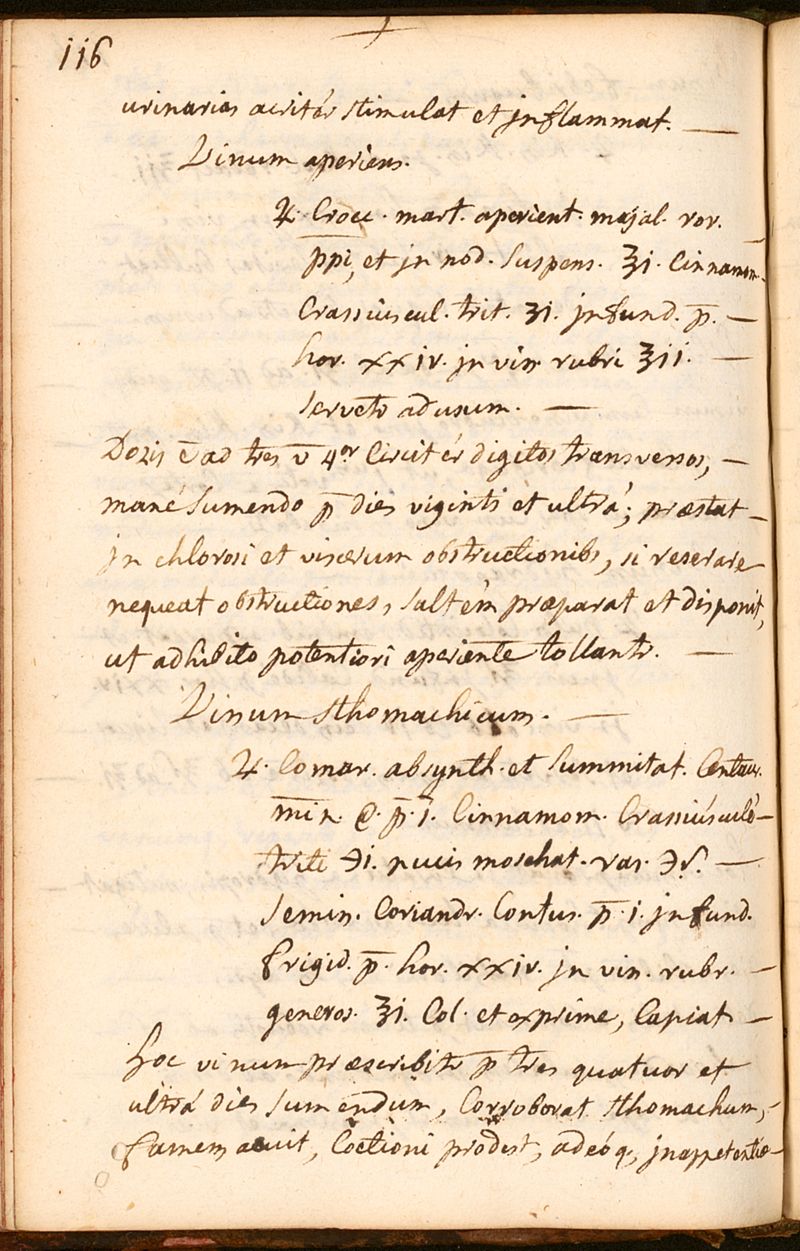 116
urinarias acritér stimulat et jnflammat. —
Vinum aperiens.
♃. Croci. mart. aperient. majal. ror. —
ppi, et jn nod. suspens. ʒi. Cinnamom.
Crassiuscul. trit. ʒi. jnfund. p̄. —
hor. xxiv. jn vin rubri ℥ii. —
servetr adusum. —
Dozis ē ad tres v̄ 4or Circitér digitos transversos, —
mané sumendo p̄ dies viginti et ultrá; præstat —
jn chlorosi et viscerum obstructionibs, si reserare
nequeat obstructiones, saltém præparat et disponit,
ut adhibito potentiori aperiente tollantr. —
Vinum sthomachicum. —
♃. Comar. absynth. et summitat. Centaur.
min. @. p̄. i. Cinnamom. Crassiúsculé —
triti ℈i. nucis moschat. ras. ℈ß. —
Semin. Coriandr. Contus. p̄. i. jnfund.
frigid. p̄. hor. xxiv. jn vin. rubr. —
generos. ℥i. Col. et exprime, Capiat —
hoc vinum præscribitr p̄ tres quatuor et
ultrá dies sumendum, Corroborat sthomachum, -
famem acuit, Coctioni prodest, adeóq, jnappetentiæ -